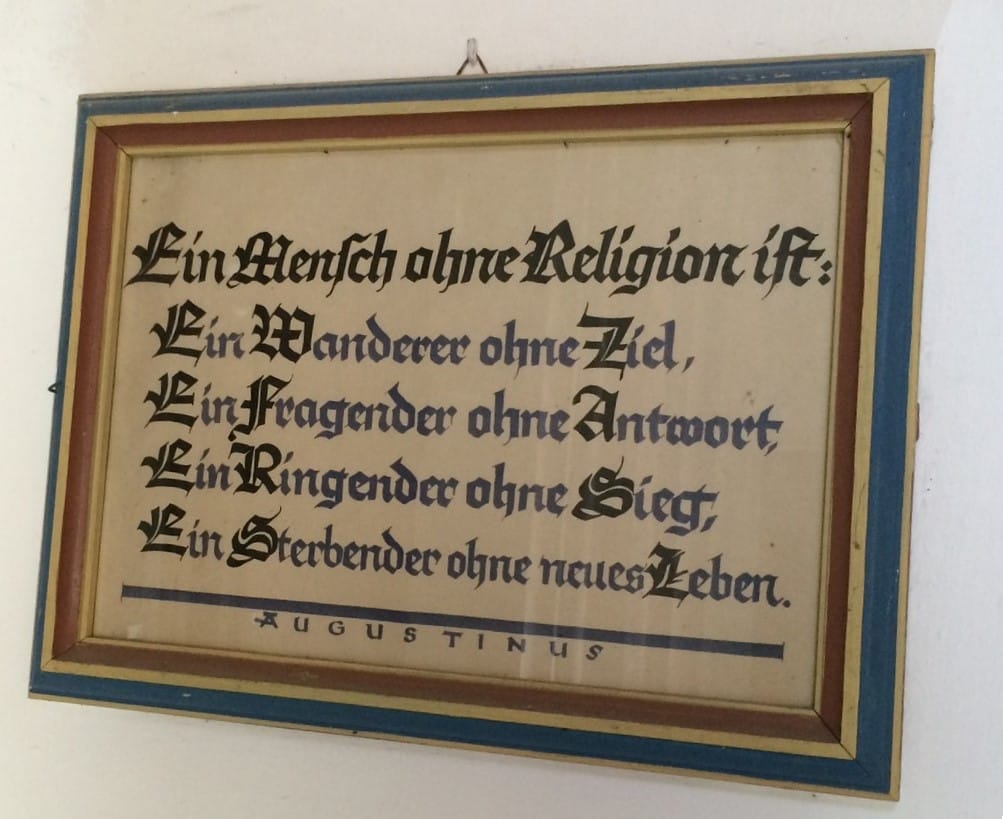 Ein Menſch ohne Religion iſt:
Ein Wanderer ohne Ziel,
Ein Fragender ohne Antwort,
Ein Ringender ohne Sieg,
Ein Sterbender ohne neues Leben.
AUGUSTINUS